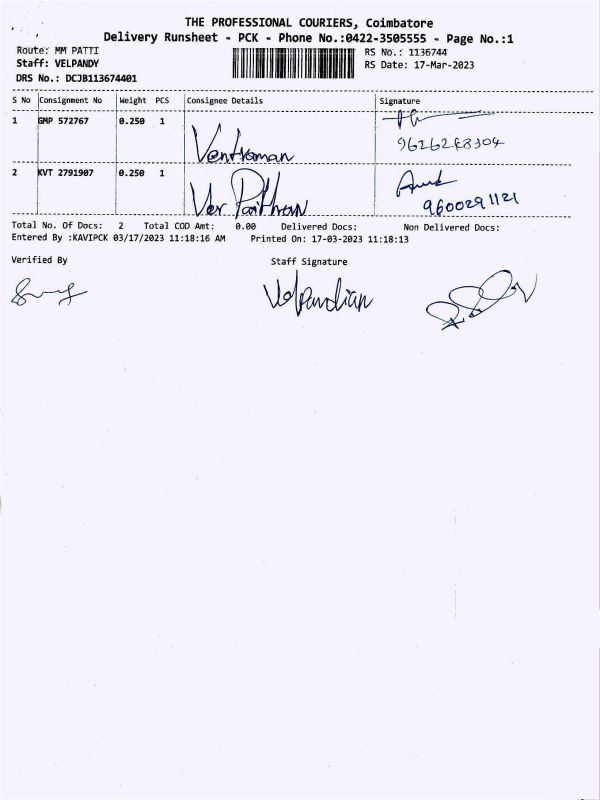 THE PROFESSIONAL COURIERS, Coimbatore
Delivery Runsheet - PCK - Phone No.:0422-3505555 - Page No.:1
Route: MM PATTI RS No.: 1136744
Staff: VELPANDY RS Date: 17-Mar-2023
DRS No.: DCJB113674401
S No Consignment No Weight PCS Consignee Details Signature
1 GMP 572767 0.250 1
9626248304
2 KVT 2791907 0.250 1
9600291121
Total No. Of Docs: 2 Total COD Amt: 0.00 Delivered Docs: Non Delivered Docs:
Entered By :KAVIPCK 03/17/2023 11:18:16 AM Printed On: 17-03-2023 11:18:13
Verified By Staff Signature
Velpandian